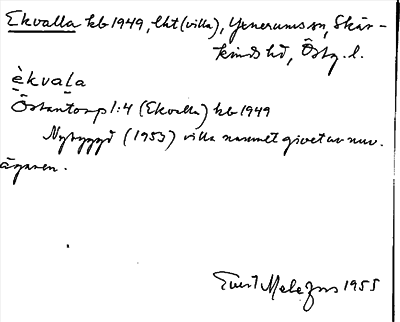 Ekvalla kb 1949, lht (villa), Yxnerums sn, Skär-
kinds hd, Östg. l.
èkvala
Östantorp 1:4 (Ekvalla) kb 1949
Nybyggd (1953) villa namnet givet av nuv.
ägaren.
Evert Melefors 1955